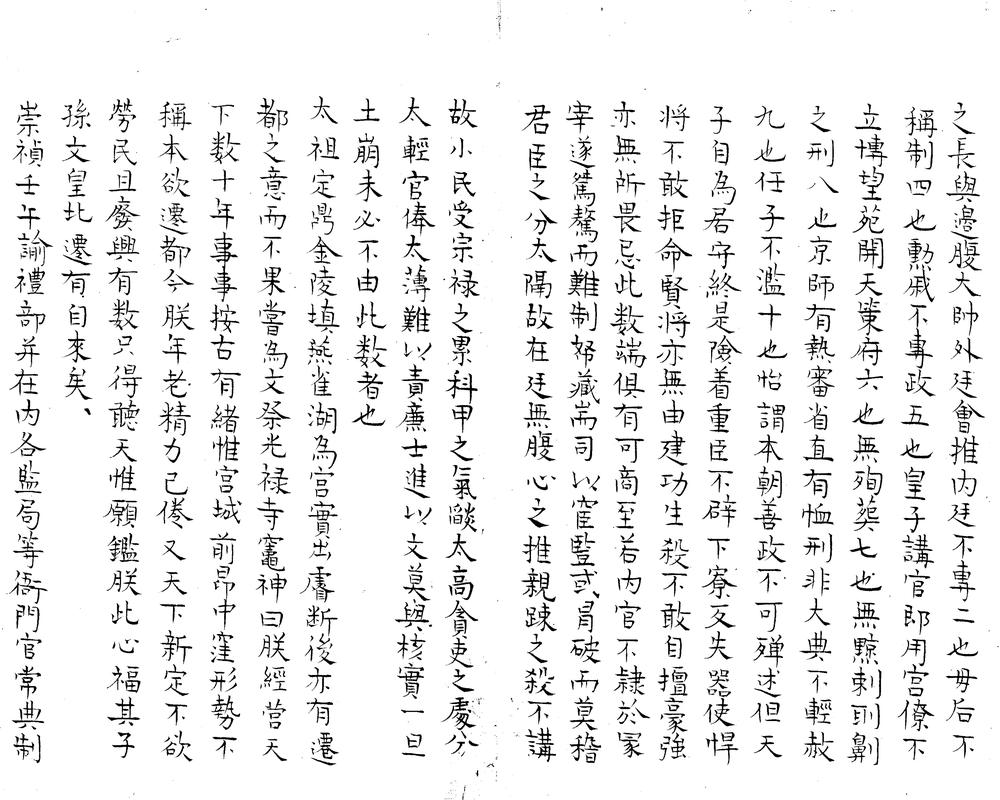 之長與邊腹大帥外廷會推内廷不專二也毋后不
稱制四也勲戚不專政五也皇子講官即用宫僚不
立博望苑開天策府六也無殉葬七也無黥刺刖劓
之刑八也京師有熱審省直有恤刑非大典不輕赦
九也任子不濫十也怡謂本朝善政不可殫述但天
子自為居守終是險着重臣不辟下寮反失器使悍
将不敢拒命賢將亦無由建功生殺不敢自擅豪強
亦無所畏忌此数端俱有可商至若内官不隷於冢
宰遂駕驁而難制帑藏耑司以宦豎或冐破而莫稽
君臣之分太隔故在廷無腹心之推親踈之殺不講
故小民受宗禄之累科甲之氣燄太高貪吏之處分
太輕官俸太薄難以責廉士進以文莫與核實一旦
土崩未必不由此数者也
太祖定鼎金陵填燕雀湖為宫實出睿断後亦有遷
都之意而不果嘗為文祭光禄寺竈神曰朕經營天
下数十年事事按古有緒惟宫城前昂中窪形勢不
稱本欲遷都今朕年老精力已倦又天下新定不欲
勞民且廢興有数只得聽天惟願鑑朕此心福其子
孫文皇北遷有自來矣、
崇禎壬午諭禮部并在内各監局等衙門官常典制